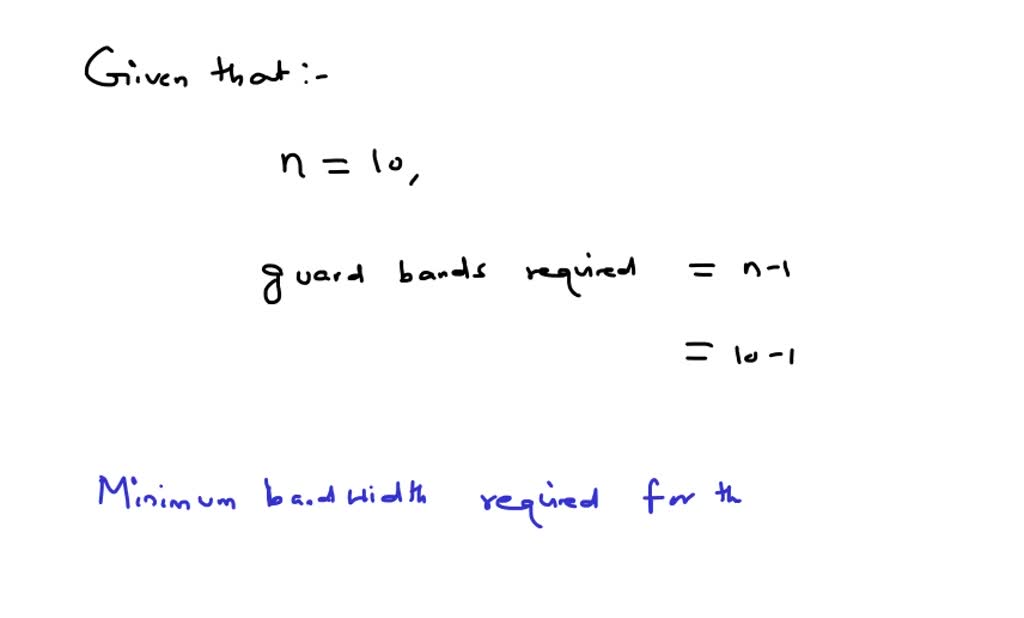 Given that :-
n = 10,
guard bands required = n-1
= 10-1
Minimum bandwidth required for th